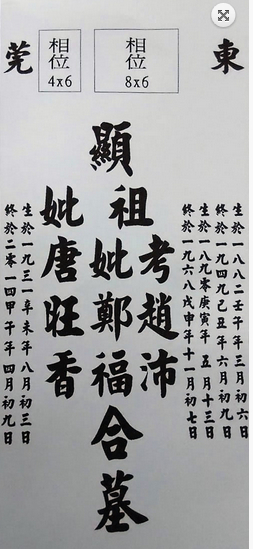 東
生於一八八二壬午年三月初六日
終於一九四九己丑年六月初九日
生於一八九零庚寅年五月十三日
終於一九六八戊申年十一月初七日
相位
8x6
相位
4x6
顯
祖
考趙沛
妣鄭福
妣唐旺香
合墓
生於一九三一辛未年八月初三日
終於二零一四甲午年四月初九日
莞